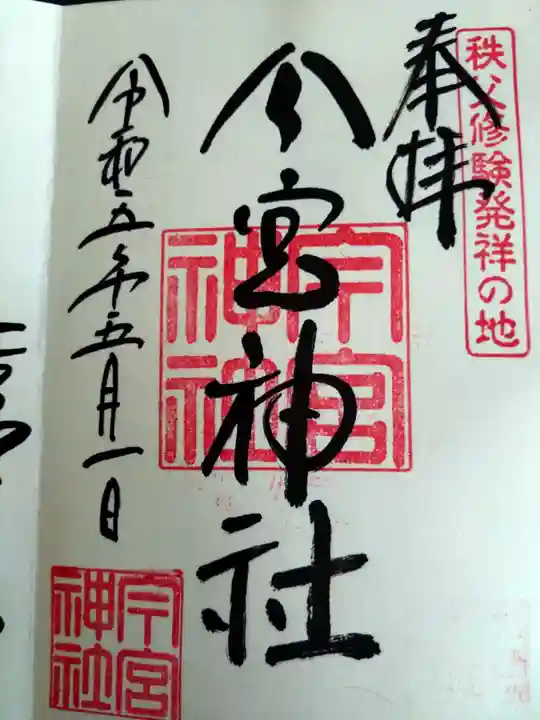 秩父修験発祥の地
奉拝
今宮神社
今宮神社
令和五年五月一日
今宮神社